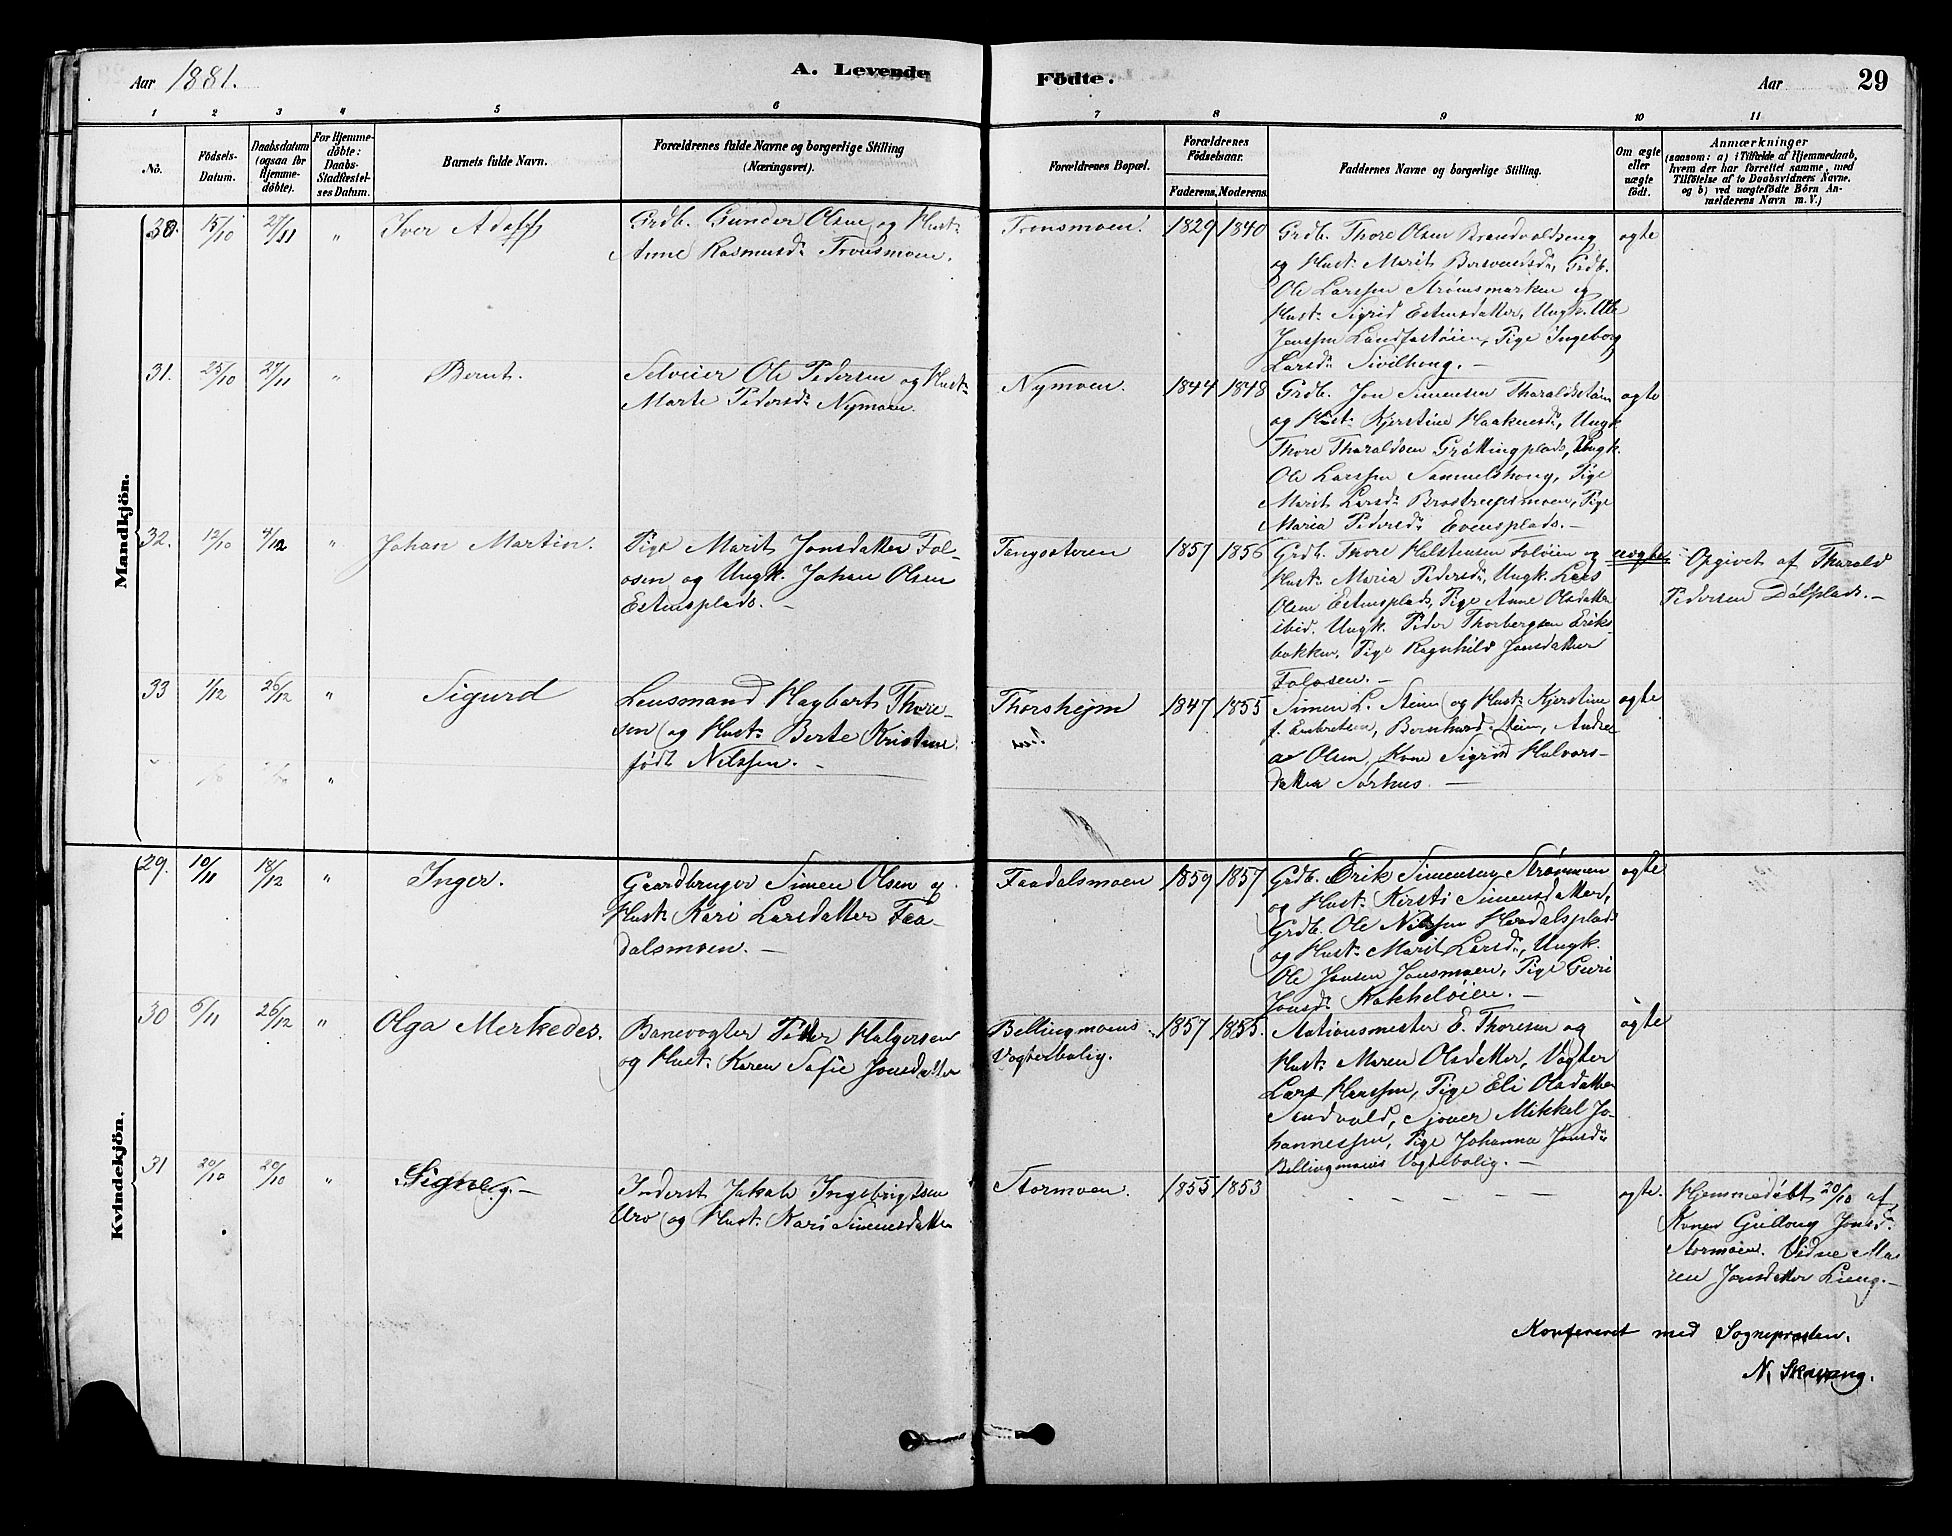 Aar 1881.
A. Levende Födte.
Aar
29
1 2 3 4 5 6 7 8 9 10 11
No.
Födsels-Datum.
Daabsdatum (ogsaa for Hjemme-döbte).
For Hjemme-döbte: Daabs-Stadfæstel-ses Datum.
Barnets fulde Navn.
Forældrenes fulde Navne og borgerlige Stilling
(Næringsvei).
Forældrenes Bopæl.
Forældrenes Födselsaar.
Faderens. Moderens.
Faddernes Navne og borgerlige Stilling.
Om ægte eller uægte födt.
Anmærkninger
(saasom: a) i Tilfælde af Hjemmedaab,
hvem der har forrettet samme, med
Tilföielse af to Daabsvidners Navne,
og b) ved uægtefödte Börn An-
melderens Navn m.V.)
Mandkjön.
30. 15/10 27/11 " Iver Adolf
Grdb. Gunder Olsen og Hust:
Anne Rasmusd: Tronsmoen.
Tronsmoen. 1829 1840
Grdb. Thore Olsen Brandvoldseng
og Hust: Marit Bersvendsd:, Grdb.
Ole Larssen Strømsmarken og
Hust: Sigrid Estensdatter, Ungk. Ole
Jonssen Landfastøien, Pige Ingeborg
Larsd:
ægte
31. 25/10 27/11 " Bernt.
Selveier Ole Pedersen og Hust:
Marte Pedersd: Nymoen.
Nymoen. 1844 1848
Grdb. Jon Simensen
og Hust: Kjerstine Haakensd:, Ungk.
Thore Tharaldsen Grøttingplads, Ungk.
Ole Larssen Samuelshaug, Pige
Marit Larsd: Brostrupsmoen, Pige
Maria Pedersd: Evensplads. —
ægte
32. 12/10 4/12 " Johan Martin.
Pige Marit Jonsdatter Fol-
osen og Ungk. Johan Olsen
Estensplads. —
1857 1856
Grdb. Thore Halstensen Foløien og
Hust: Maria Pedersd:, Ungk. Lars
Olsen Estensplads, Pige Anne Olsdatter
ibid. Ungk. Peder Thorbergsen Eriks-
bakken, Pige Ragnhild Jonsdatter
Folosen. —
uægte
Opgivet af Tharald
Pedersen Dølplads. —
33 1/12 26/12 " Sigurd
Lensmand Hagbart Thore-
sen og Hust: Berte Kristine
født Nilssen. —
Thorshejm 1847 1855
Simen L. Steien og Hust: Kjerstine
f. Embretsen, Bernhard Steien, Andre
as Olsen, Kone Sigrid Halvors-
datter Sørhus. —
ægte
"
Kvindekjön.
29. 10/11 18/12 " Inger.
Gaardbruger Simen Olsen og
Hust: Kari Larsdatter Faa-
dalsmoen. —
Faadalsmoen 1859 1857
Grdb. Erik Simensen Strømmen
og Hust: Kirsti Simensdatter,
Grdb. Ole Nilssen
og Hust: Marit Larsd:, Ungk.
Ole Jonsen Jonsmoen, Pige Guri
Jonsd: Kakkeløien. —
ægte
30 6/11 26/12 " Olga Merkedes.
Banevogter Petter Halgersen
og Hust: Karen Sofie Jonsdatter
Bellingmoens
Vogterbolig.
1857 1855.
Stationsmester E. Thoresen og
Hust: Maren Olsdatter, Vogter
Lars Hanssen, Pige Eli Olsdatter
Sandvold, Mikkel Jo-
hannessen, Pige Johanna Jonsd:
Bellingmoens Vogterbolig. —
ægte
31 20/10 20/10 " Signe. —
Inderst Jakob Ingebrigtsen
Urv og Hust: Kari Simensdatter
Stormoen. 1855 1853
— — — — — —
ægte.
Hjemmedøbt 20/10 af
Konen Gullaug Jonsd:
Stormoen. Vidne Ma
ren Jonsdatter Lieng. —
Konfereret med Sognepresten.
N. Skavang.